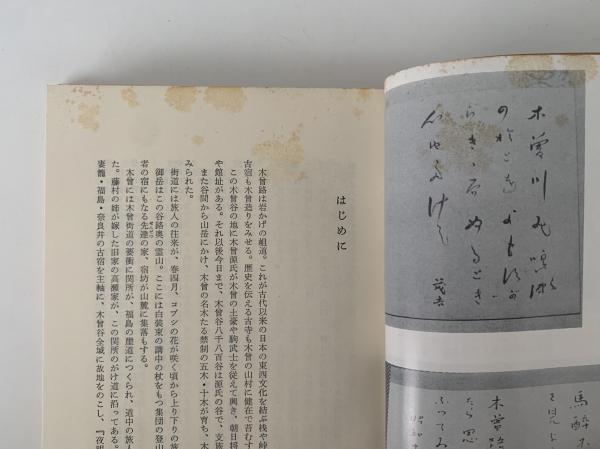 はじめに
木曾路は岩かげの岨道。これが古代以来の日本の東西文化を結ぶ桟や峠
古宿も木曾造りをみせる。歴史を伝える古寺も木曾の山村に健在で苔むす
この木曾谷の地に木曾源氏が木曾の土豪や駒武士を従えて興き、朝日将
や館址がある。それ以後今日まで、木曾谷八千八百谷は源氏の谷で、支族
また谷間から山岳にかけ、木曾の名木たる禁制の五木・十木が育ち、木
みられた。
街道には旅人の往来が、春四月、コブシの花が咲く頃から上り下りの旅
御岳はこの谷路奥の霊山。ここには白装束の講中の杖をもつ集団の登山
者の宿にもなる先達の家、宿坊が山麓に集落もする。
木曾には木曾街道の要衝に関所が、福島の崖道につくられ、道中の旅人
た。藤村の姉が嫁した旧家の高瀬家が、この関所のがけ道に沿ってある。
妻籠・福島・奈良井の古宿を主軸に、木曾谷全域に故地をのこし、『夜明
木曾川
茂吉
馬酔木
を見
木曾路
たら思
ふつてみ
昭和十